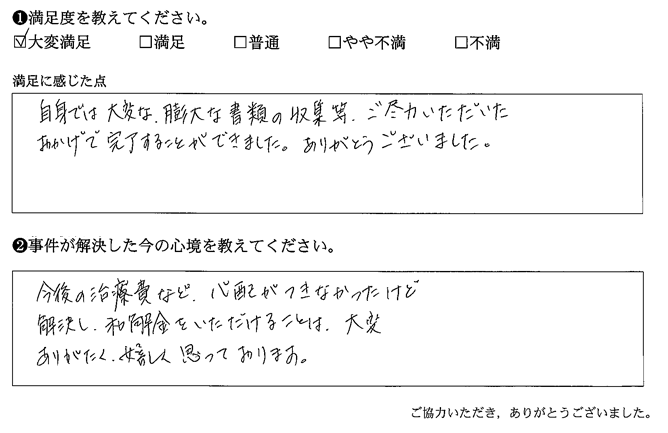 ❶満足度を教えてください。
☑大変満足 □満足 □普通 □やや不満 □不満
満足に感じた点
自身では大変な、膨大な書類の収集等、ご尽力いただいた
おかげで完了することができました。ありがとうございました。
❷事件が解決した今の心境を教えてください。
今後の治療費など、心配がつきなかったけど
解決し、和解金をいただけることは、大変
ありがたく、嬉しく思っております。
ご協力いただき，ありがとうございました。